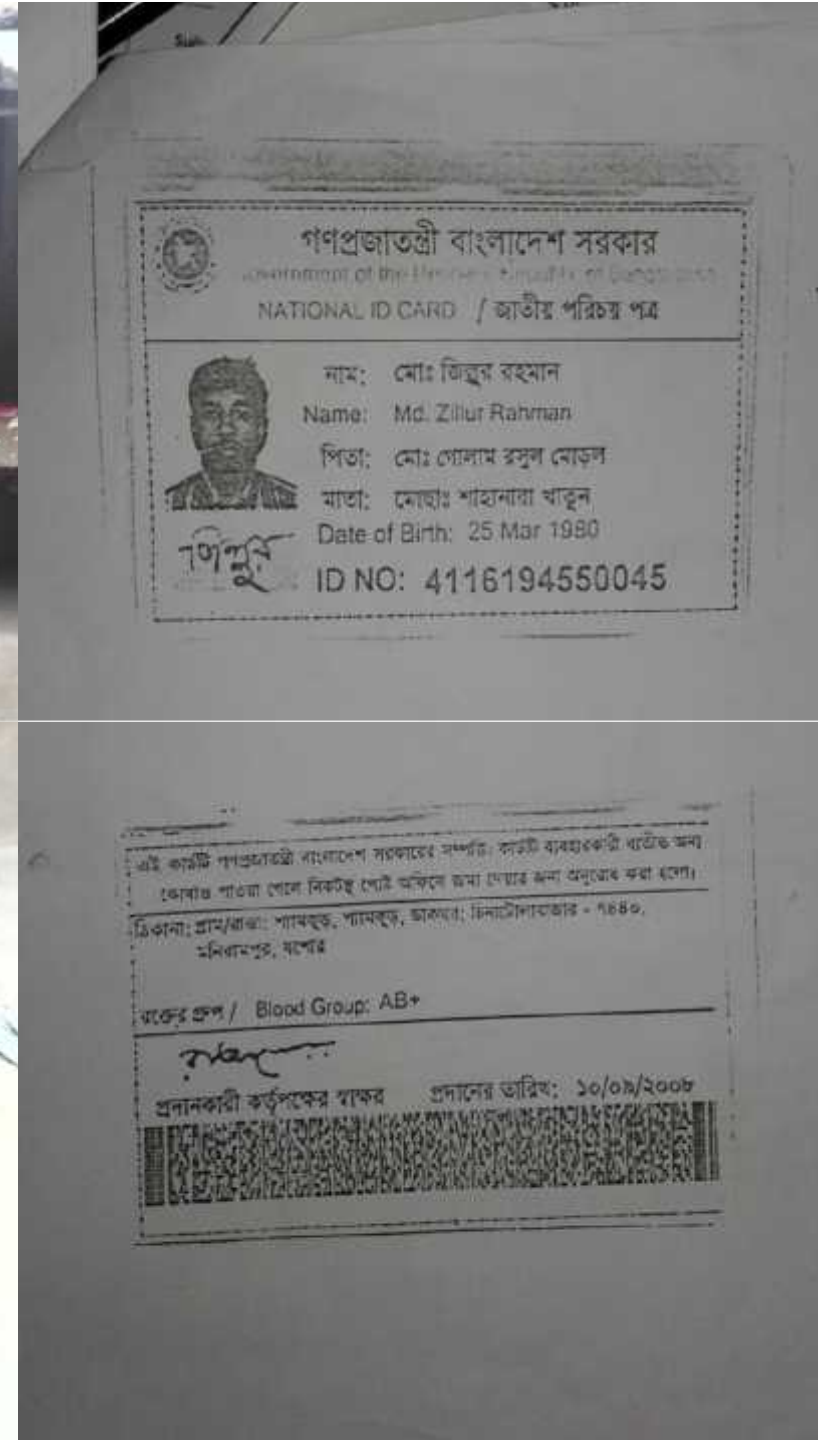 গণপ্রজাতন্ত্রী বাংলাদেশ সরকার
Government of the People's Republic of Bangladesh
NATIONAL ID CARD / জাতীয় পরিচয় পত্র
নাম: মোঃ জিল্লুর রহমান
Name: Md. Zillur Rahman
পিতা: মোঃ গোলাম রসুল মোড়ল
মাতা: মোছাঃ শাহানারা খাতুন
Date of Birth: 25 Mar 1980
জিল্লুর
ID NO: 4116194550045
এই কার্ডটি গণপ্রজাতন্ত্রী বাংলাদেশ সরকারের সম্পত্তি। কার্ডটি ব্যবহারকারী ব্যতীত অন্য
কোথাও পাওয়া গেলে নিকটস্থ পোস্ট অফিসে জমা দেয়ার জন্য অনুরোধ করা হলো।
ঠিকানা: গ্রাম/রাস্তা: শ্যামকুড়, শ্যামকুড়, ডাকঘর: চিনাটোলাবাজার - ৭৪৪০,
মনিরামপুর, যশোর
রক্তের গ্রুপ / Blood Group: AB+
প্রদানকারী কর্তৃপক্ষের স্বাক্ষর প্রদানের তারিখ: ১০/০৯/২০০৮